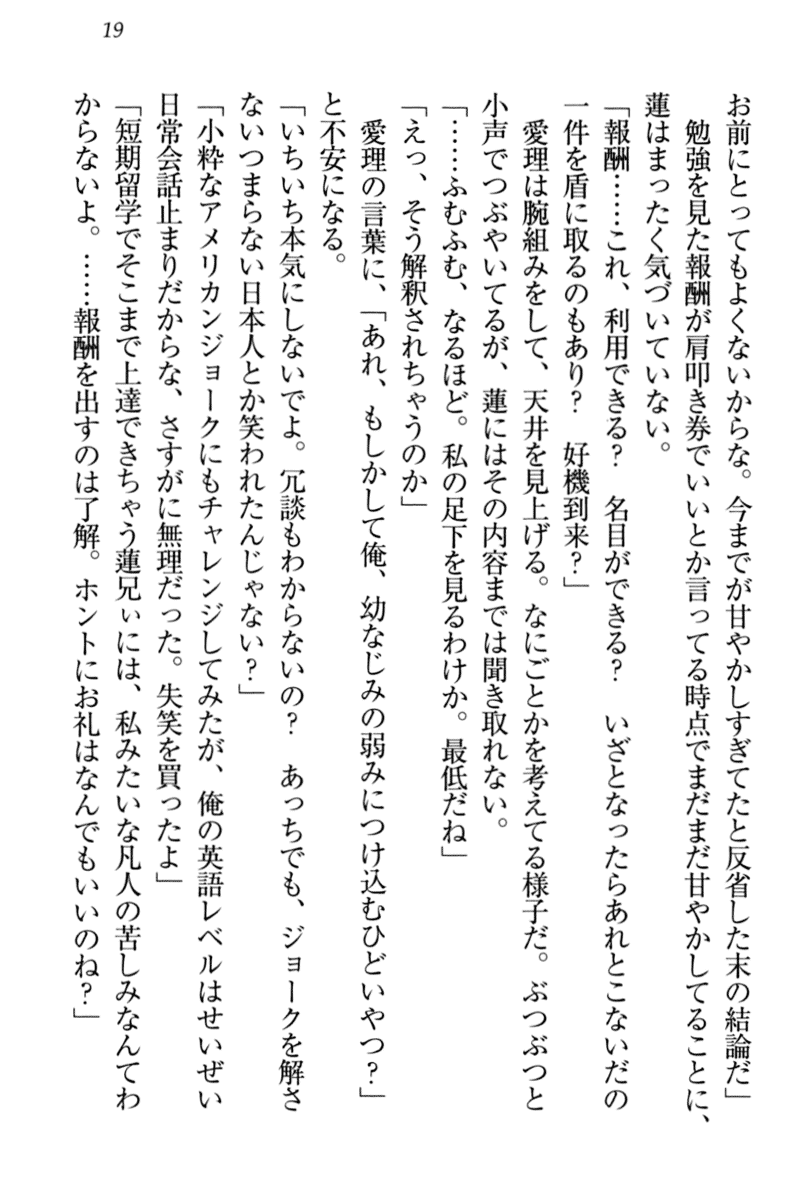 19
お前にとってもよくないからな。今までが甘やかしすぎてたと反省した末の結論だ」
　勉強を見た報酬が肩叩き券でいいとか言ってる時点でまだまだ甘やかしてることに、
蓮はまったく気づいていない。
「報酬……これ、利用できる？　名目ができる？　いざとなったらあれとこないだの
一件を盾に取るのもあり？　好機到来？」
　愛理は腕組みをして、天井を見上げる。なにごとかを考えてる様子だ。ぶつぶつと
小声でつぶやいてるが、蓮にはその内容までは聞き取れない。
「……ふむふむ、なるほど。私の足下を見るわけか。最低だね」
「えっ、そう解釈されちゃうのか」
　愛理の言葉に、「あれ、もしかして俺、幼なじみの弱みにつけ込むひどいやつ？」
と不安になる。
「いちいち本気にしないでよ。冗談もわからないの？　あっちでも、ジョークを解さ
ないつまらない日本人とか笑われたんじゃない？」
「小粋なアメリカンジョークにもチャレンジしてみたが、俺の英語レベルはせいぜい
日常会話止まりだからな、さすがに無理だった。失笑を買ったよ」
「短期留学でそこまで上達できちゃう蓮兄ぃには、私みたいな凡人の苦しみなんてわ
からないよ。……報酬を出すのは了解。ホントにお礼はなんでもいいのね？」